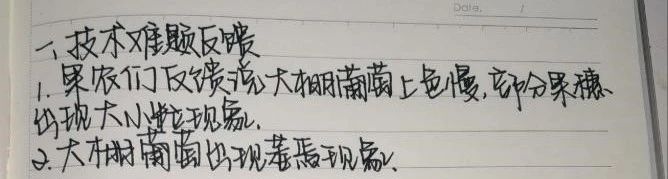 Date.
一、技术难题反馈
1. 果农们反馈说大棚葡萄上色慢,部分果穗
出现大小粒现象.
2. 大棚葡萄出现现象.